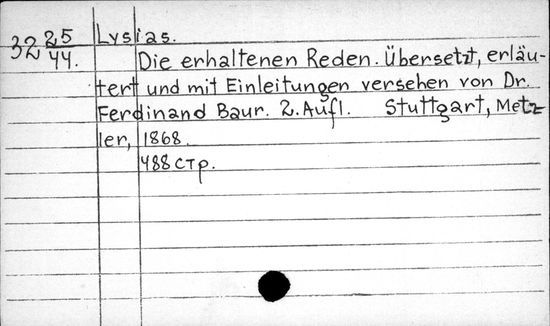 32 25/44. Lysias.
Die erhaltenen Reden. Übersetzt, erläu-
tert und mit Einleitungen versehen von Dr.
Ferdinand Baur. 2. Aufl. Stuttgart, Metz
ler, 1868.
488 стр.